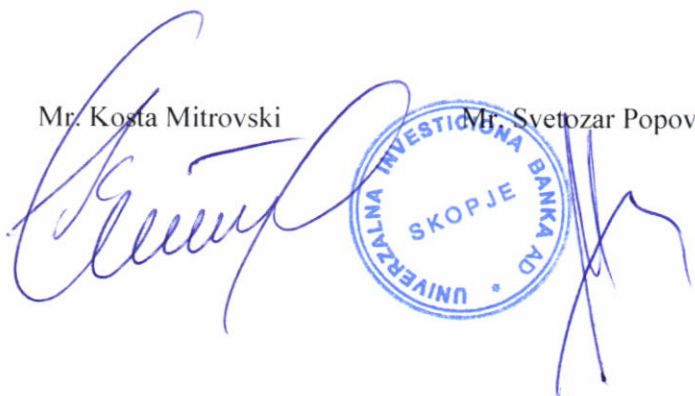 Mr. Kosta Mitrovski
Mr. Svetozar Popov
UNIVERZALNA INVESTICIONA BANKA AD *
SKOPJE